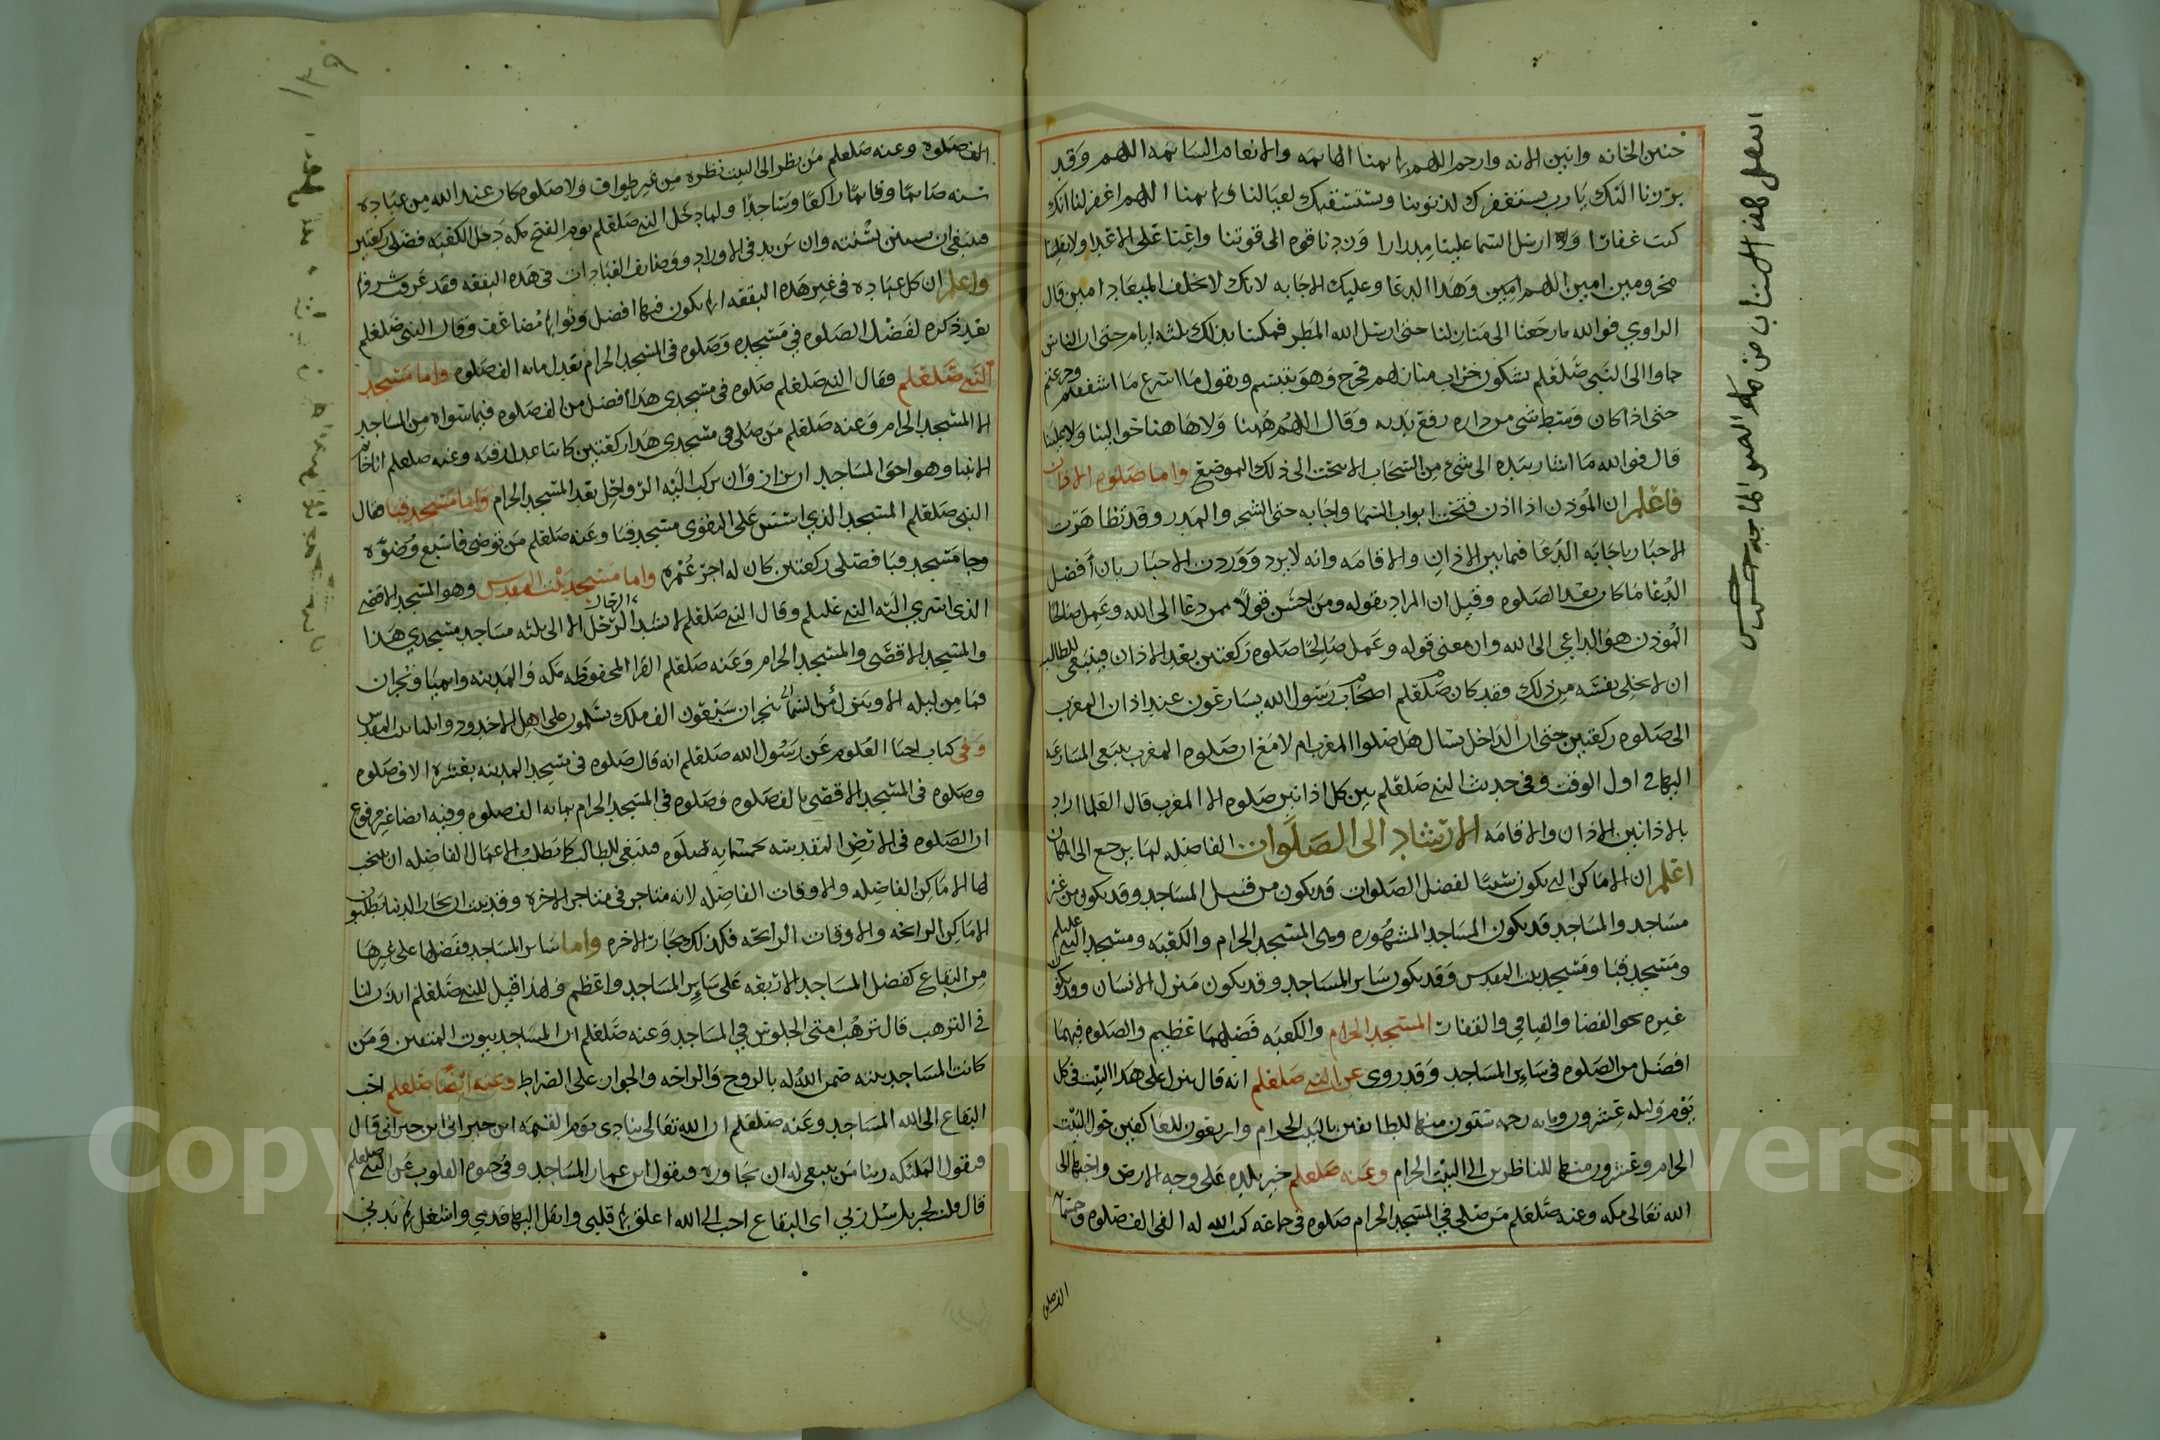 حنين الحانه وانين الانه وارحم اللهم بهايمنا الهايمه والانعام السايمه اللهم وقد
برزنا اليك يارب نستغفرك لذنوبنا ونستسقيك لعيالنا وبهايمنا اللهم اغفر لنا انك
كنت غفارا وارسل السما علينا مدرارا وزدنا قوه الى قوتنا واعنا على الاعدا ولا تقلبنا
محرومين امين اللهم امين وهذا الدعا وعليك الاجابه لانك لا تخلف الميعاد امين قال
الراوي فوالله ما رجعنا الى منازلنا حتى ارسل الله المطر فمكثنا بذلك ثلثه ايام حتى ان الناس
جاوا الى النبي صلعلم يشكون خراب منازلهم فخرج وهو يتبسم ويقول ما اسرع ما
حتى اذا كان وسط شي من داره رفع يديه وقال اللهم ههنا ولا هاهنا حوالينا ولا علينا
قال فوالله ما اشار بيده الى شيء من السحاب الا تنحت الى ذلك الموضع واما صلوه الاذان
فاعلم ان المؤذن اذا اذن فتحت ابواب السما واجابه حتى الشجر والمدر وقد تظاهرت
الاخبار باجابه الدعا فيما بين الاذان والاقامه وانه لا يرد ووردت الاخبار بان أفضل
الدعا ما كان بعد الصلوه وقيل ان المراد بقوله ومن احسن قولا ممن دعا الى الله وعمل صالحا
المؤذن هو الداعي الى الله وان معنى قوله وعمل صالحا صلوه ركعتين بعد الاذان فينبغي للطالب
ان لا يخلي نفسه من ذلك وقد كان اصحاب رسول الله يسارعون عند اذان المغرب
الى صلوه ركعتين حتى ان الداخل يسال هل صلوا المغرب ام لا مع ان صلوه المغرب ينبغي المسارعه
اليها في اول الوقت وفي حديث النبي صلعلم بين كل اذانين صلوه الا المغرب قال العلما اراد
بالاذانين الاذان والاقامه الارشاد الى الصلوات الفاضله لما يرجع الى المكان
اعلم ان الاماكن التي تكون سببا لفضل الصلوات قد يكون من قبيل المساجد وقد يكون من غير
مساجد والمساجد قد يكون المساجد المشهوره وهي المسجد الحرام والكعبه ومسجد النبي
ومسجد قبا ومسجد بيت المقدس وقد يكون ساير المساجد وقد يكون منزل الانسان وقد يكون
غيره نحو الفضا والفيافي والقفار المسجد الحرام والكعبه فضلهما عظيم والصلوه فيهما
افضل من الصلوه في ساير المساجد وقد روي عن النبي صلعلم انه قال ينزل على هذا البيت في كل
يوم وليله عشرون ومايه رحمه ستون منها للطايفين بالبيت الحرام واربعون للعاكفين حول البيت
الحرام وعشرون منها للناظرين الى البيت الحرام وعنه صلعلم خير بلده على وجه الارض واحبها الى
الله تعالى مكه وعنه صلعلم من صلى في المسجد الحرام صلوه في جماعه كتب الله له الفي الف صلوه وخمسمايه
الف صلوه
الف صلوه وعنه صلعلم من نظر الى البيت نظره من غير طواف ولا صلوه كان عند الله من عباده
سنه صايما وقايما راكعا وساجدا ولما دخل النبي صلعلم يوم الفتح مكه دخل الكعبه فصلى ركعتين
فينبغي ان يستن بسنته وان يزيد في الاوراد ووضايف العبادات في هذه البقعه فقد عرف شرفها
واعلم ان كل عباده في غير هذه البقعه انها يكون فيها افضل وثوابها مضاعف وقال النبي صلعلم
بعد ذكره لفضل الصلوه في مسجده وصلوه في المسجد الحرام تعدل مايه الف صلوه واما مسجد
النبي صلعلم فقال النبي صلعلم صلوه في مسجدي هذا افضل من الف صلوه فيما سواه من المساجد
الا المسجد الحرام وعنه صلعلم من صلى في مسجدي هذا ركعتين كانتا عدل رقبه وعنه صلعلم انا خاتم
الانبيا وهو احق المساجد ان يزار وان يركب اليه الرواحل بعد المسجد الحرام واما مسجد قبا فقال
النبي صلعلم المسجد الذي اسس على التقوى مسجد قبا وعنه صلعلم من توضى فاسبغ وضوه
وجا مسجد قبا فصلى ركعتين كان له اجر عمره واما مسجد بيت المقدس وهو المسجد الاقصى
الذي اسري اليه النبي عليلم وقال النبي صلعلم لا تشد الرحل الا الى ثلثه مساجد مسجدي هذا
والمسجد الاقصى والمسجد الحرام وعنه صلعلم القرا المحفوظه مكه والمدينه وايليا ونجران
فما من ليله الا وينزل من السما بنجران سبعون الف ملك يسلمون على اهل الاخدود وايليا بيت المقدس
وفي كتاب احيا العلوم عن رسول الله صلعلم انه قال صلوه في مسجد المدينه بعشره الاف صلوه
وصلوه في المسجد الاقصى بالف صلوه وصلوه في المسجد الحرام بمايه الف صلوه وفيه ايضا غير مرفوع
ان الصلوه في الارض المقدسه بخمسمايه صلوه فينبغي للطالب كما يطلب الاعمال الفاضله ان
لها الاماكن الفاضله والاوقات الفاضله لانه متاجر في متاجر الاخره وقد ان تجار الدنيا يطلبون
الاماكن الرابحه والاوقات الرابحه فكذلك تجار الاخره واما ساير المساجد ففضلها على غيرها
من البقاع كفضل المساجد الاربعه على ساير المساجد واعظم ولهذا قيل للنبي صلعلم ايذن لنا
في الترهب قال ترهب امتي الجلوس في المساجد وعنه صلعلم ان المساجد بيوت المتقين ومن
كانت المساجد بيته ضمن الله له بالروح والراحه والجواز على الصراط وعنه ايضا صلعلم احب
البقاع الى الله المساجد وعنه صلعلم ان الله تعالى ينادي يوم القيمه اين جيراني اين جيراني قال
فيقول الملئكه ربنا من ينبغي له ان يجاوره فيقول اين عمار المساجد وفي حيوه القلوب عن النبي صلعلم
قال قلت لجبريل رسل ربي اى البقاع احب الى الله اعلق بها قلبي وانقل اليها قدمي واشغل بها بدني
١٣٩